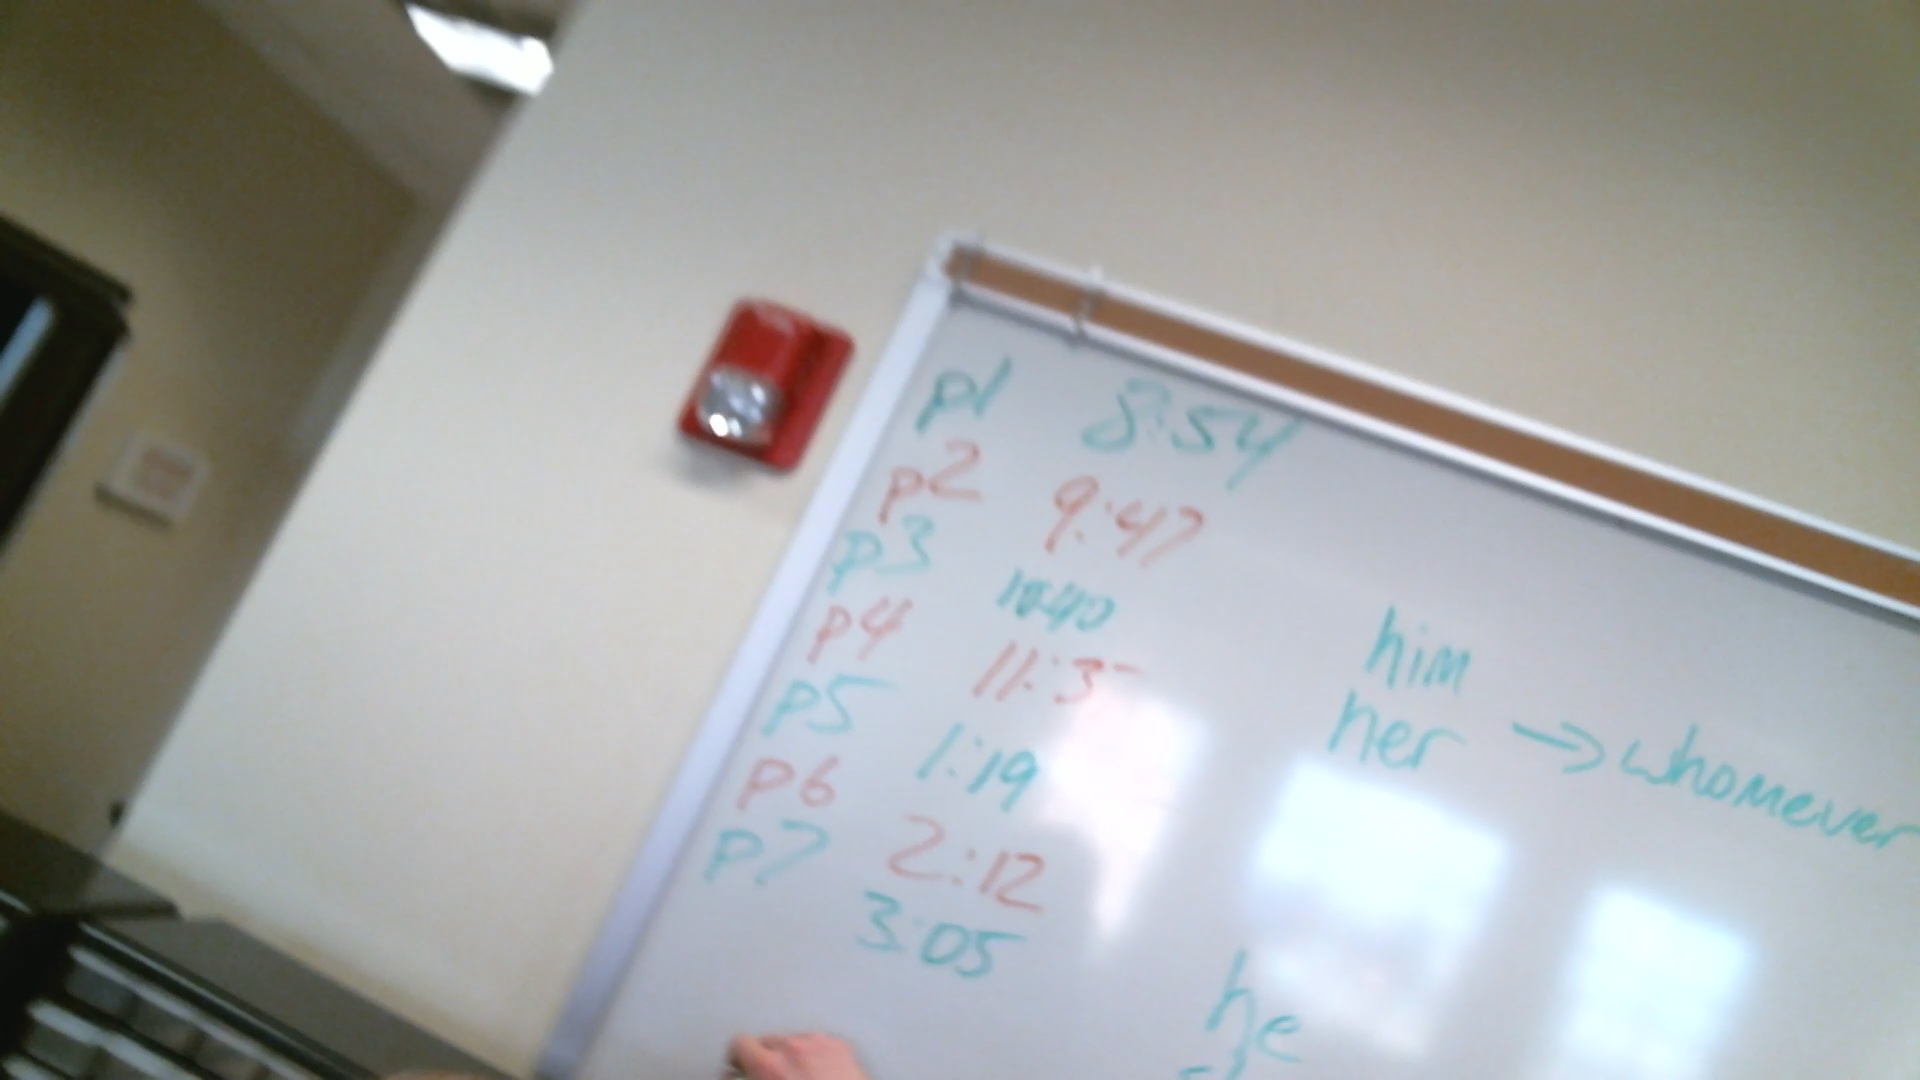 p1 8:54
p2 9:47
p3 10:40
p4
p5 1:19
p6 2:12
p7 3:05
him
her → whomever
he